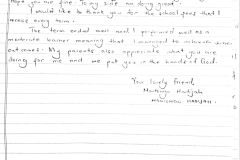 Hope you are fine. To my side am doing great.
I would like to thank you for the school fees that I
receive every term.
The term ended well and I performed well as a
moderate learner meaning that I managed to achieve
outcomes. My parents also appreciate what you are
doing for me and we put you in the hands of God.
You lovely friend,
Hadijah
HADIJAH.